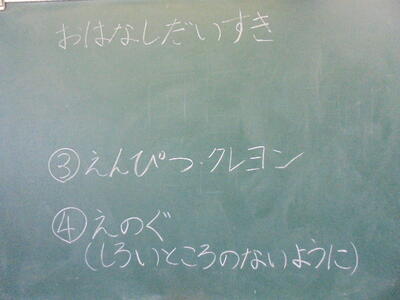 おはなしだいすき
③えんぴつ・クレヨン
④えのぐ
(しろいところのないように)